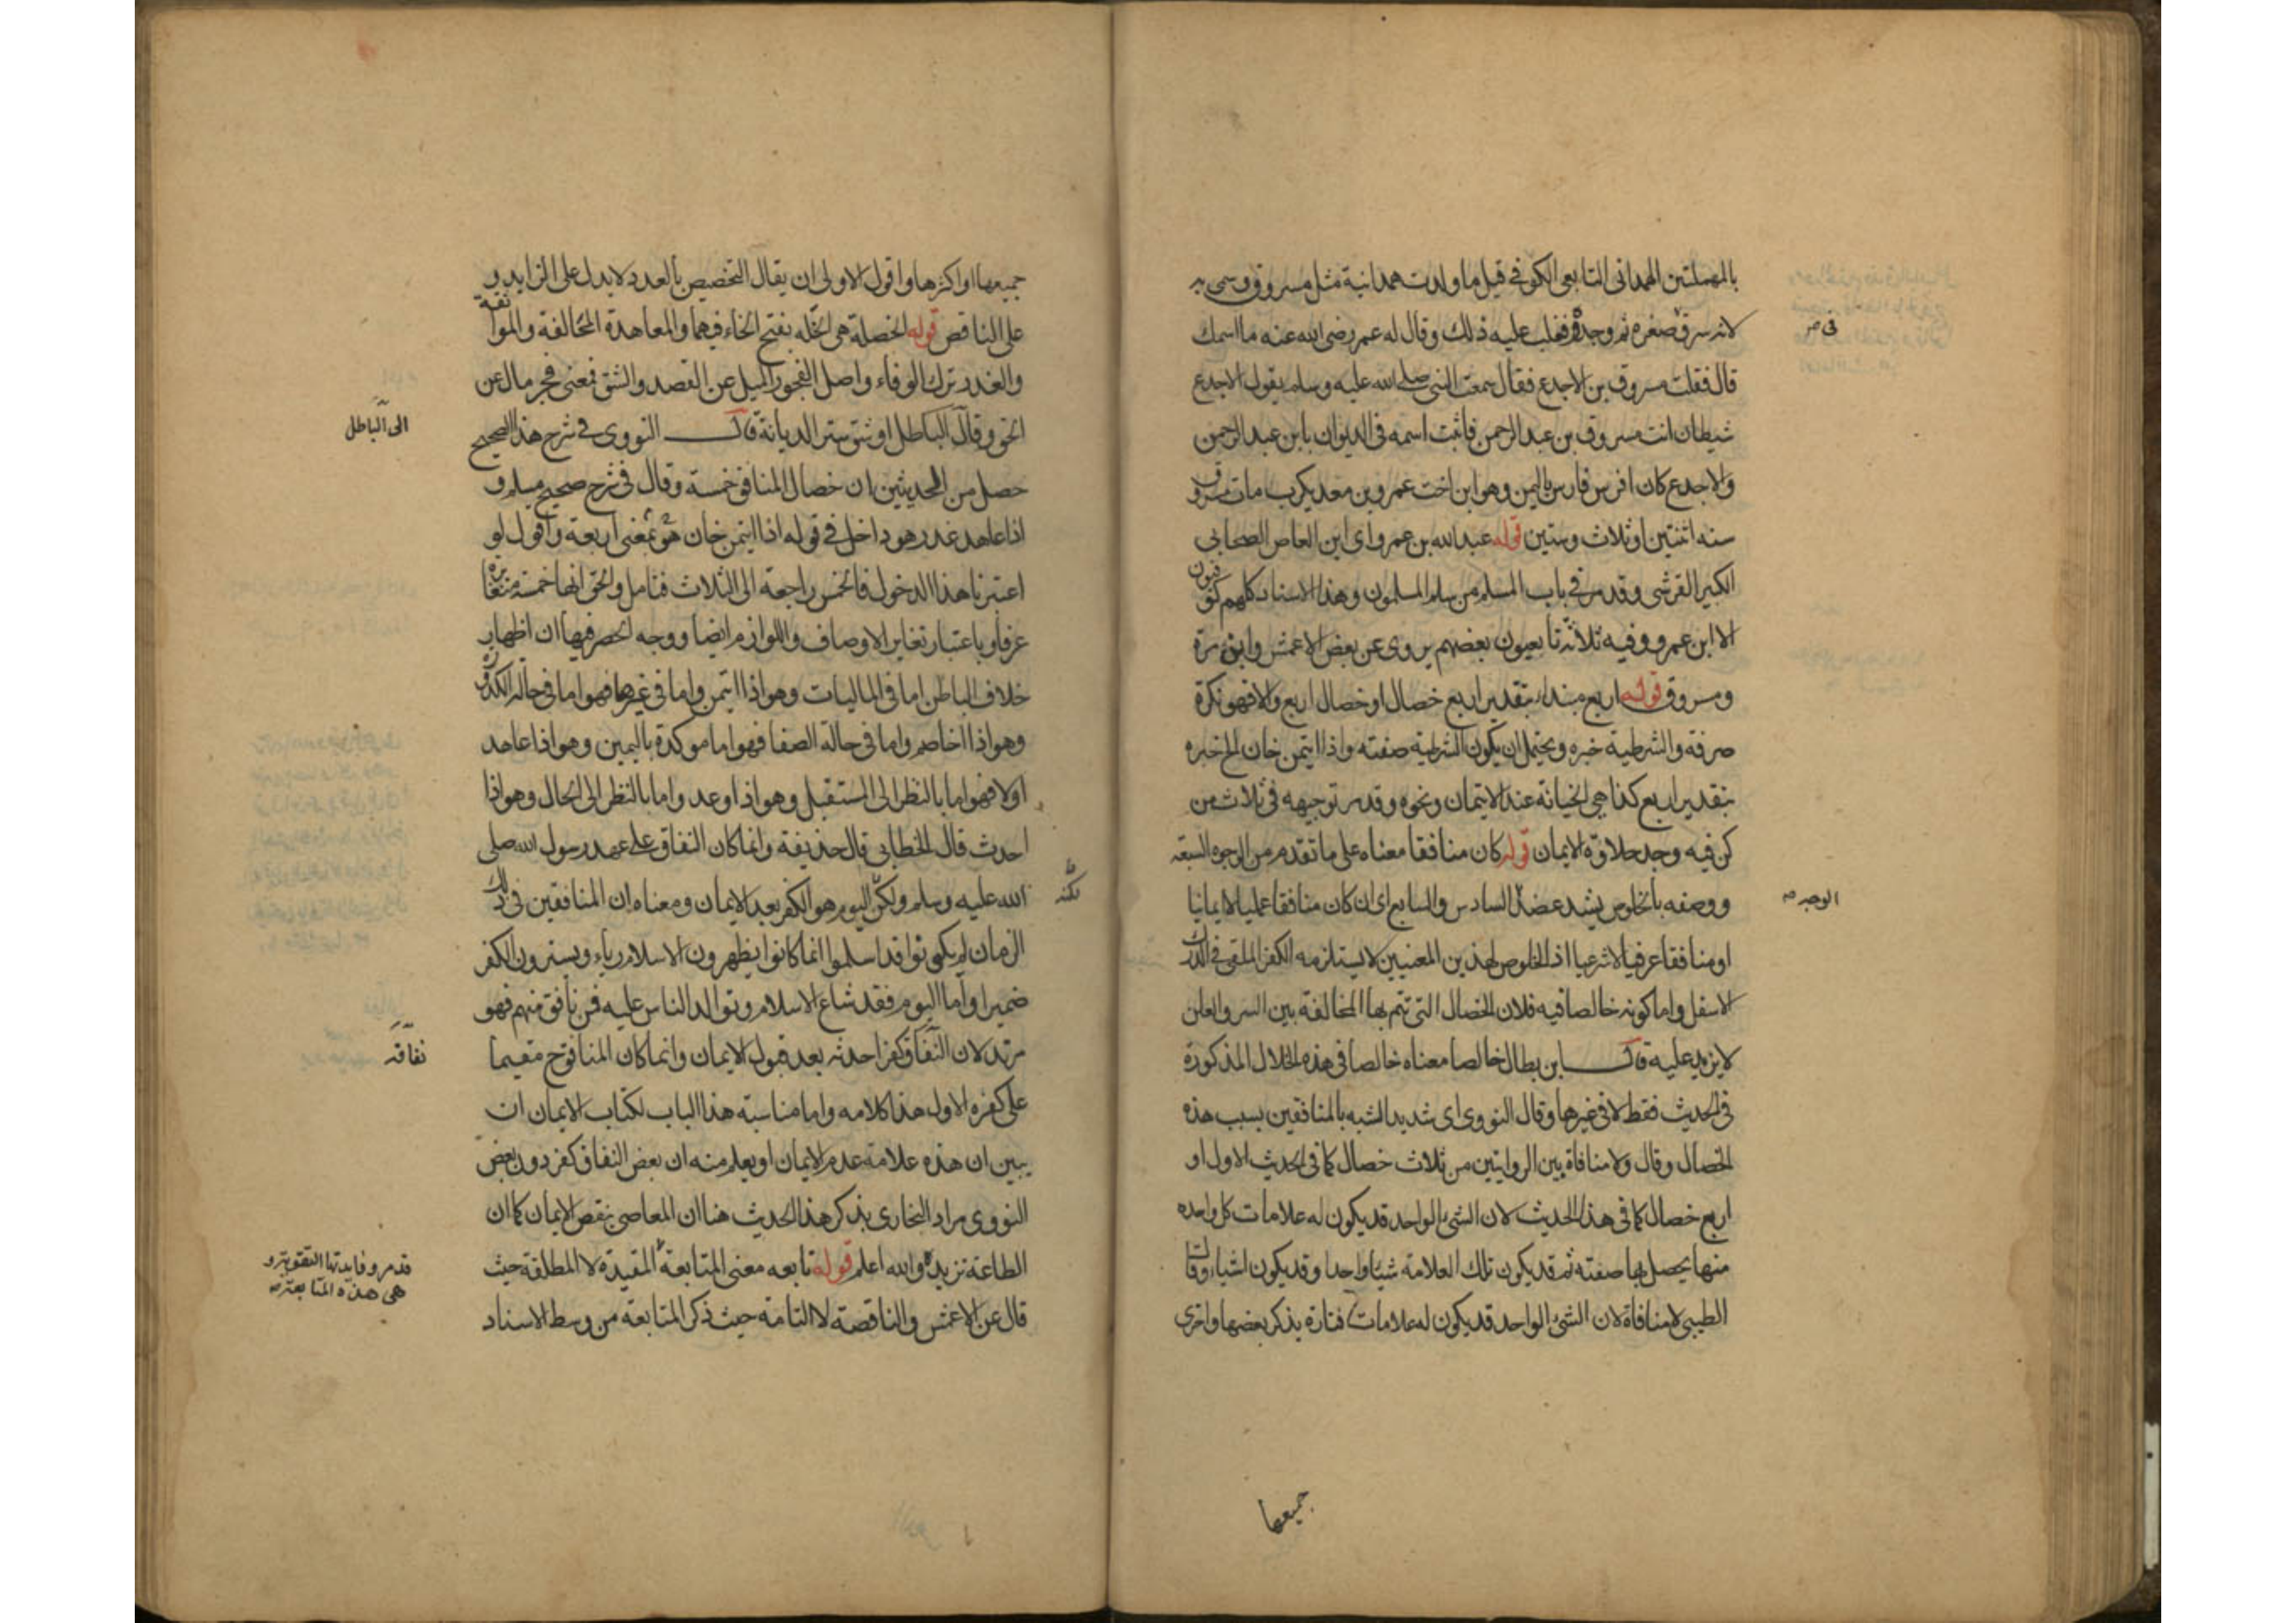 بالمهملتين الهمداني التابعي الكوفي قيل ما ولدت همدانية مثل مسروق وسمي به
لانه سرق في صغره ثم وجد فغلب عليه ذلك وقال له عمر رضي الله عنه ما اسمك
في صر
قال فقلت مسروق بن الاجدع فقال سمعت النبي صلى الله عليه وسلم يقول الاجدع
شيطان انت مسروق بن عبد الرحمن فاثبت اسمه في الديوان بابن عبد الرحمن
والاجدع كان افرس فارس باليمن وهو ابن اخت عمرو بن معديكرب مات مسروق
سنه اثنتين او ثلاث وستين قوله عبد الله بن عمرو اي ابن العاص الصحابي
الكبير القرشي وقد مر في باب المسلم من سلم المسلمون وهذا الاسناد كلهم كوفيون
الا ابن عمرو وفيه ثلاثة تابعيون بعضهم يروي عن بعض الاعمش وابن مرة
ومسروق قوله اربع مبتدا بتقدير اربع خصال او خصال اربع والا فهو نكرة
صرفة والشرطية خبره ويحتمل ان يكون الشرطية صفته واذا ايتمن خان الخ خبره
بتقدير اربع كذا هي الخيانة عند الايتمان ونحوه وقد مر توجيهه في ثلاث من
كن فيه وجد حلاوة الايمان قوله كان منافقا معناه على ما تقدم من الوجوه السبعة
ووصفه بالخلوص يشد عضد السادس والسابع اي ان كان منافقا عمليا لا ايمانيا
الوجه صح
او منافقا عرفيا لا شرعيا اذ الخلوص لهذين المعنيين لا يستلزمه الكفر الملقي في الدرك
الاسفل واما كونه خالصا فيه فلان الخصال التي تتم بها المخالفة بين السر والعلن
لا يزيد عليه قال ابن بطال خالصا معناه خالصا في هذه الخلال المذكورة
في الحديث فقط لا في غيرها وقال النووي اي شديد الشبه بالمنافقين بسبب هذه
الخصال وقال ولا منافاة بين الروايتين من ثلاث خصال كما في الحديث الاول او
اربع خصال كما في هذا الحديث لان الشيء الواحد قد يكون له علامات كل واحدة
منها يحصل بها صفته ثم قد يكون تلك العلامة شيئا واحدا وقد يكون اشياء وقال
الطيبي لا منافاة لان الشيء الواحد قد يكون له علامات فتارة يذكر بعضها واخرى
جميعها
جميعها او اكثرها واقول الاولى ان يقال التخصيص بالعدد لا يدل على الزايد و
على الناقص قوله الخصلة هي الخلة بفتح الخاء فيهما والمعاهدة المخالفة والمواثقة
والغدر ترك الوفاء واصل الفجور الميل عن القصد والشق فمعنى فجر مال عن
الحق وقال الباطل او شق ستر الديانة قال النووي في شرح هذا الصحيح
الى الباطل
حصل من الحديثين ان خصال المنافق خمسة وقال في شرح صحيح مسلم و
اذا عاهد غدر هو داخل في قوله اذا ايتمن خان فهو بمعنى اربعة واقول لو
اعتبرنا هذا الدخول فالخمس راجعة الى الثلاث فتامل والحق انها خمسة متغايرة
عرفا وباعتبار تغاير الاوصاف واللوازم ايضا ووجه الحصر فيها ان اظهار
خلاف الباطن اما في الماليات وهو اذا ايتمن واما في غيرها فهو اما في حالة الكدورة
وهو اذا خاصم واما في حالة الصفا فهو اما موكدة باليمين وهو اذا عاهد
اولا فهو اما بالنظر الى المستقبل وهو اذا وعد واما بالنظر الى الحال وهو اذا
احدث قال الخطابي قال حذيفة وانما كان النفاق على عهد رسول الله صلى
الله عليه وسلم ولكن اليوم هو الكفر بعد الايمان ومعناه ان المنافقين في ذلك
لكنه
الزمان لم يكونوا قد اسلموا انما كانوا يظهرون الاسلام رياء ويسترون الكفر
ضميرا واما اليوم فقد شاع الاسلام وتوالد الناس عليه فمن نافق منهم فهو
مرتد لان النفاق كفر احدثه بعد قبول الايمان وانما كان المنافق ح مقيما
نفاقه
على كفره الاول هذا كلامه واما مناسبة هذا الباب لكتاب الايمان ان
يبين ان هذه علامة عدم الايمان او يعلم منه ان بعض النفاق كفر دون بعض
النووي مراد البخاري بذكر هذا الحديث هنا ان المعاصي ينقص الايمان كما ان
الطاعة تزيده والله اعلم قوله تابعه معنى المتابعة المقيدة لا المطلقة حيث
قد مر وفايدتها التقوية و
هي هذه المتابعة صح
قال عن الاعمش والناقصة لا التامة حيث ذكر المتابعة من وسط الاسناد